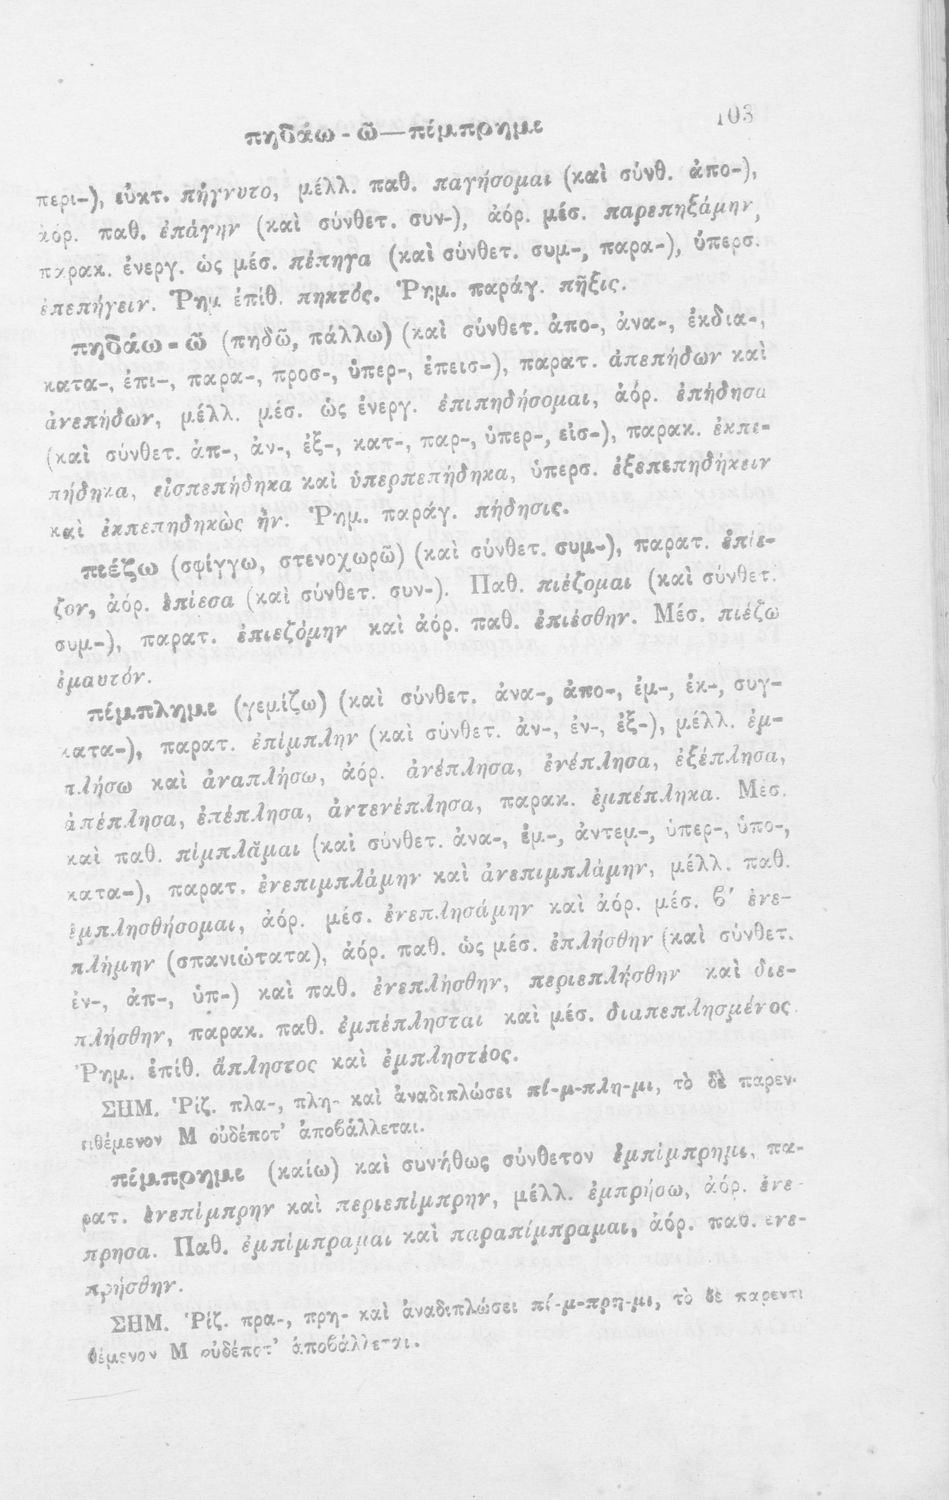 πηδάω-ῶ—πίμπρημι 103
περι-), εὐκτ. πήγνυτο, μέλλ. παθ. παγήσομαι (καὶ σύνθ. ἀπο-),
ἀόρ. παθ. ἐπάγην (καὶ σύνθετ. συν-), ἀόρ. μέσ. παρεπηξάμην,
παρακ. ἐνεργ. ὡς μέσ. πέπηγα (καὶ σύνθετ. συμ-, παρα-), ὑπερσ.
ἐπεπήγειν. Ῥημ. ἐπίθ. πηκτός. Ῥημ. παράγ. πῆξις.
πηδάω-ῶ (πηδῶ, πάλλω) (καὶ σύνθετ. ἀπο-, ἀνα-, ἐκδια-,
κατα-, ἐπι-, παρα-, προσ-, ὑπερ-, ἐπεισ-), παρατ. ἀπεπήδων καὶ
ἀνεπήδων, μέλλ. μέσ. ὡς ἐνεργ. ἐπιπηδήσομαι, ἀόρ. ἐπήδησα
(καὶ σύνθετ. ἀπ-, ἀν-, ἐξ-, κατ-, παρ-, ὑπερ-, εἰσ-), παρακ. ἐκπε-
πήδηκα, εἰσπεπήδηκα καὶ ὑπερπεπήδηκα, ὑπερσ. ἐξεπεπηδήκειν
καὶ ἐκπεπηδηκὼς ἦν. Ῥημ. παράγ. πήδησις.
πιέζω (σφίγγω, στενοχωρῶ) (καὶ σύνθετ. συμ-), παρατ. ἐπίε-
ζον, ἀόρ. ἐπίεσα (καὶ σύνθετ. συν-). Παθ. πιέζομαι (καὶ σύνθετ.
συμ-), παρατ. ἐπιεζόμην καὶ ἀόρ. παθ. ἐπιέσθην. Μέσ. πιέζω
ἐμαυτόν.
πίμπλημι (γεμίζω) (καὶ σύνθετ. ἀνα-, ἀπο-, ἐμ-, ἐκ-, συγ-
κατα-), παρατ. ἐπίμπλην (καὶ σύνθετ. ἀν-, ἐν-, ἐξ-), μέλλ. ἐμ-
πλήσω καὶ ἀναπλήσω, ἀόρ. ἀνέπλησα, ἐνέπλησα, ἐξέπλησα,
ἀπέπλησα, ἐπέπλησα, ἀντενέπλησα, παρακ. ἐμπέπληκα. Μέσ.
καὶ παθ. πίμπλᾰμαι (καὶ σύνθετ. ἀνα-, ἐμ-, ἀντεμ-, ὑπερ-, ὑπο-,
κατα-), παρατ. ἐνεπιμπλάμην καὶ ἀνεπιμπλάμην, μέλλ. παθ.
ἐμπλησθήσομαι, ἀόρ. μέσ. ἐνεπλησάμην καὶ ἀόρ. μέσ. ϐ′ ἐνε-
πλήμην (σπανιώτατα), ἀόρ. παθ. ὡς μέσ. ἐπλήσθην (καὶ σύνθετ.
ἐν-, ἀπ-, ὑπ-) καὶ παθ. ἐνεπλήσθην, περιεπλήσθην καὶ διε-
πλήσθην, παρακ. παθ. ἐμπέπλησται καὶ μέσ. διαπεπλησμένος.
Ῥημ. ἐπίθ. ἄπληστος καὶ ἐμπληστέος.
ΣΗΜ. Ῥίζ. πλα-, πλη- καὶ ἀναδιπλώσει πί-μ-πλη-μι, τὸ δὲ παρεν-
τιθέμενον Μ οὐδέποτ' ἀποβάλλεται.
πίμπρημι (καίω) καὶ συνήθως σύνθετον ἐμπίμπρημι, πα-
ρατ. ἐνεπίμπρην καὶ περιεπίμπρην, μέλλ. ἐμπρήσω, ἀόρ. ἐνέ-
πρησα. Παθ. ἐμπίμπραμαι καὶ παραπίμπραμαι, ἀόρ. παθ. ἐνε-
πρήσθην.
ΣΗΜ. Ῥίζ. πρα-, πρη- καὶ ἀναδιπλώσει πί-μ-πρη-μι, τὸ δὲ παρεντι
θέμενον Μ οὐδέποτ' ἀποβάλλεται.